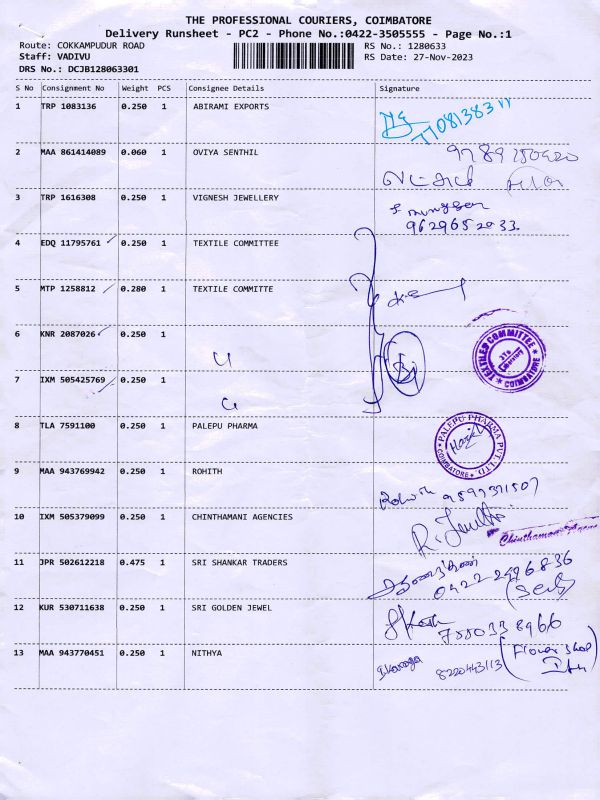 THE PROFESSIONAL COURIERS, COIMBATORE
Delivery Runsheet - PC2 - Phone No.:0422-3505555 - Page No.:1
Route: COKKAMPUDUR ROAD
RS No.: 1280633
Staff: VADIVU
RS Date: 27-Nov-2023
DRS No.: DCJB128063301
S No Consignment No Weight PCS Consignee Details Signature
1 TRP 1083136 0.250 1 ABIRAMI EXPORTS
2 MAA 861414089 0.060 1 OVIYA SENTHIL
3 TRP 1616308 0.250 1 VIGNESH JEWELLERY
9629652033
4 EDQ 11795761 0.250 1 TEXTILE COMMITTEE
5 MTP 1258812 0.280 1 TEXTILE COMMITTE
6 KNR 2087026 0.250 1
TEXTILES COMMITTEE
COIMBATORE
7 IXM 505425769 0.250 1
8 TLA 7591100 0.250 1 PALEPU PHARMA
PALEPU PHARMA PVT. LTD
COIMBATORE
9 MAA 943769942 0.250 1 ROHITH
Rohith
10 IXM 505379099 0.250 1 CHINTHAMANI AGENCIES
11 JPR 502612218 0.475 1 SRI SHANKAR TRADERS
0422-2496836
12 KUR 530711638 0.250 1 SRI GOLDEN JEWEL
13 MAA 943770451 0.250 1 NITHYA
8220443113